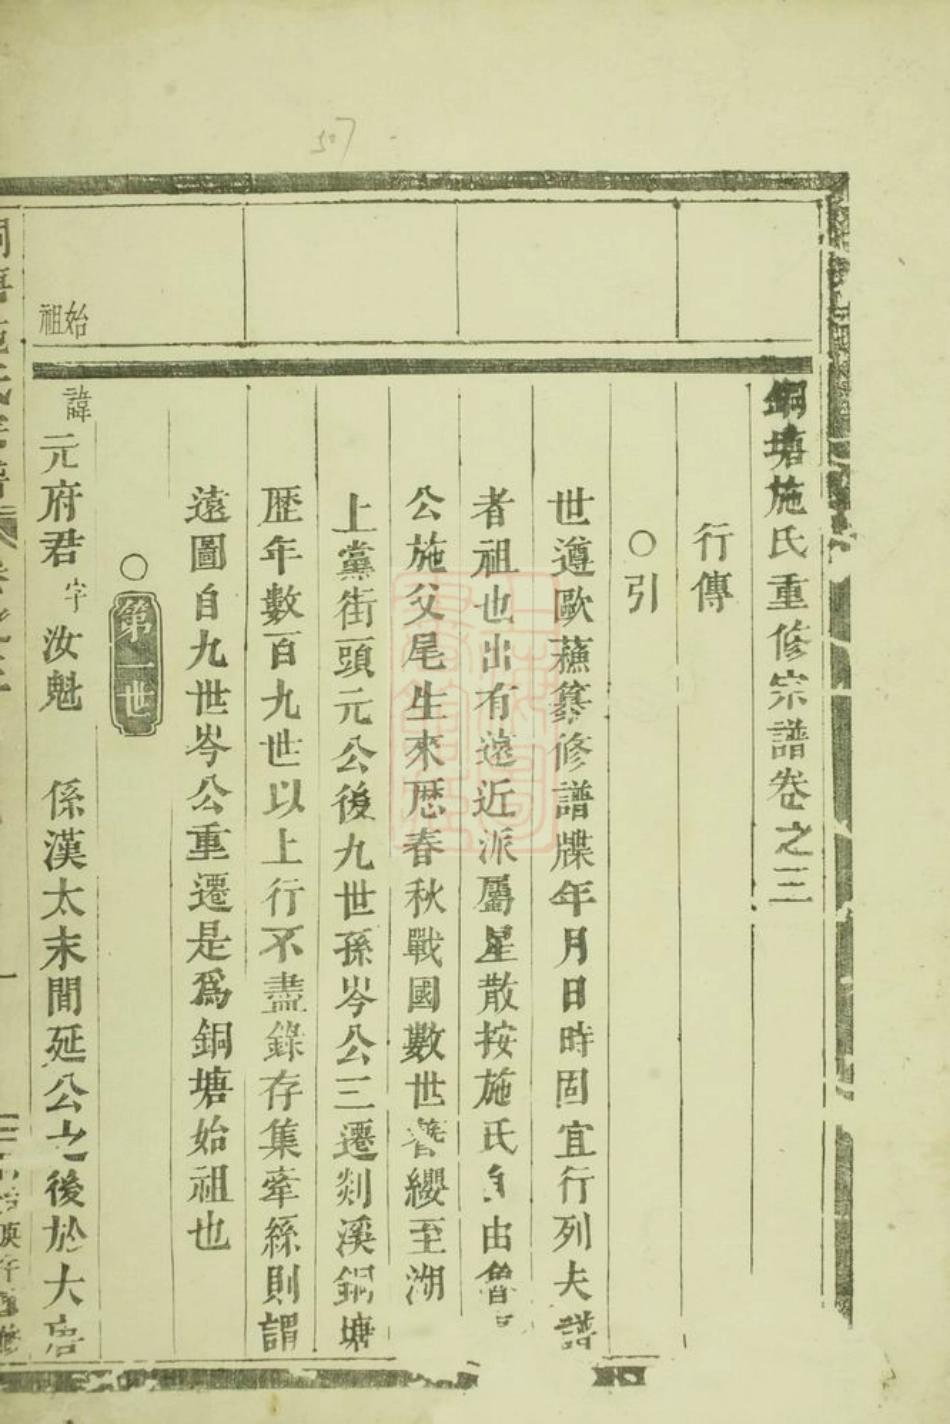 銅塘施氏重修宗譜卷之三
行傳
○引
世遵歐蘇纂修譜牒年月日時固宜行列夫譜
者祖也出有遠近派屬星散按施氏自由魯
公施父尾生來歷春秋戰國數世簪纓至湖
上黨街頭元公後九世孫岑公三遷剡溪銅塘
歷年數百九世以上行不盡錄存集牽絲則謂
遠圖自九世岑公重遷是爲銅塘始祖也
○第一世
始祖
諱元府君字汝魁 係漢太末間延公之後於大唐
507